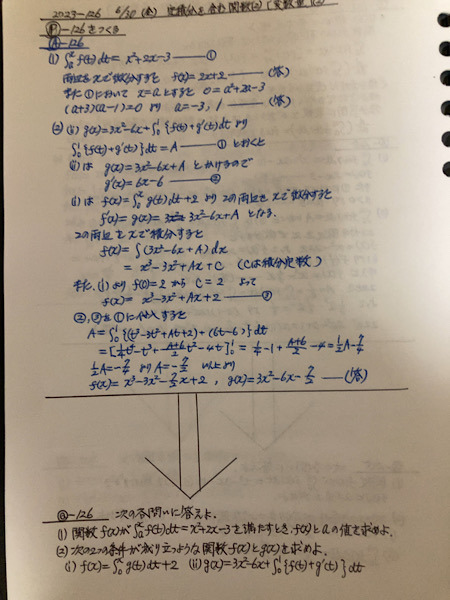 2023-126 6/30 (金) 定積分を含む関数(2) [変数型](2)
Ⓟ-126をつくる
Ⓐ-126
(1) ∫ₐˣ f(t)dt = x²+2x-3 ―― ①
両辺をxで微分すると f(x)=2x+2 ――(答)
また①において x=a とすると 0=a²+2a-3
(a+3)(a-1)=0 より a=-3, 1 ――(答)
(2) (ii) g(x)=3x²-6x+∫₀¹{f(t)+g'(t)}dt より
∫₀¹{f(t)+g'(t)}dt=A ―― ① とおくと
(ii)は g(x)=3x²-6x+A とかけるので
g'(x)=6x-6 ―― ②
(i)は f(x)=∫₀ˣ g(t)dt+2 より 2の両辺をxで微分すると
f'(x)=g(x)=3x²-6x+A となる.
2の両辺をxで積分すると
f(x)=∫(3x²-6x+A)dx
=x³-3x²+Ax+C (Cは積分定数)
また, (i)より f(0)=2 から C=2 よって
f(x)=x³-3x²+Ax+2 ―― ③
②,③を①に代入すると
A=∫₀¹{(t³-3t²+At+2)+(6t-6)}dt
=[1/4t⁴-t³+(A+6)/2t²-4t]₀¹=1/4-1+(A+6)/2-4=1/2A-7/4
1/2A=-7/4 より A=-7/2 以上より
f(x)=x³-3x²-7/2x+2, g(x)=3x²-6x-7/2 ――(答)
Ⓠ-126 次の各問いに答えよ.
(1) 関数f(x)が∫ₐˣ f(t)dt=x²+2x-3を満たすとき, f(x)とaの値を求めよ.
(2) 次の2つの条件が成り立つような関数f(x)とg(x)を求めよ.
(i) f(x)=∫₀ˣ g(t)dt+2 (ii) g(x)=3x²-6x+∫₀¹{f(t)+g'(t)}dt